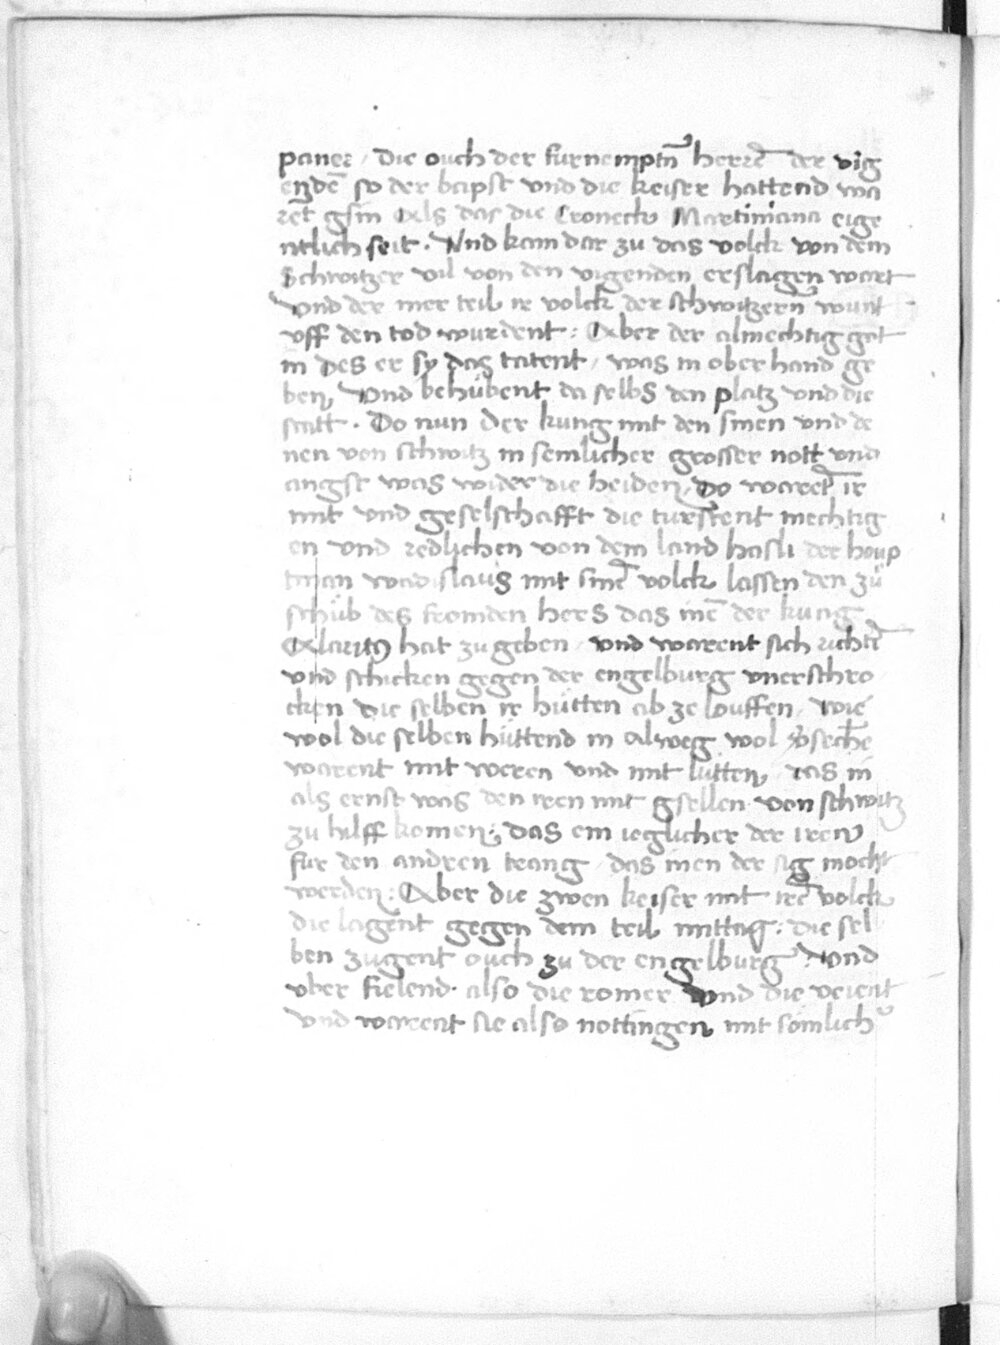 paner / die ouch der furnemptn̄ herrē der vig
endē so der bapst vnd die keiser hattend wa
ret gsin Als das die Croneck Martiniana eige
ntlich seit . Vnd kam dar zu das volck von dem
Schwitzer vil von den vigenden erslagen wart
vnd der mer teil ir volck der schwitzern wunt
vff den tod wurdent : Aber der almechtig got
in des er sy das tatent / was in ober hand ge
ben , Vnd behübent da selbs den platz vnd die
statt . Do nun der kung mit den sinen vnd de
nen von schwitz in semlicher grosser nott vnd
angst was wider die heiden , Do waret ir
mit vnd geselschafft die turstent mechtig
en vnd redlichen von dem land hasli der houp
tman wadislaus mit sinē volck lassen den zů
schůb des fromden hers das inē der kung
Alarius hat zu geben / vnd warent sich richtē
vnd schicken gegen der engelburg vnerschro
cken die selben ir hütten ab ze louffen / wie
wol die selben hüttend in alweg wol vsechē
warent mit weren vnd mit lütten , das in
als ernst was den iren mit gsellen von schwitz
zu hilff komen : das ein ieglicher der iren
für den andren trang / das inen der sig mocht
werden : Aber die zwen keiser mit irē volck
die lagent gegen dem teil mittag : die sel
ben zugent ouch zu der engelburg Vnd
vber fielend . also die romer vnd die veient
vnd warent sie also nottingen mit somlich